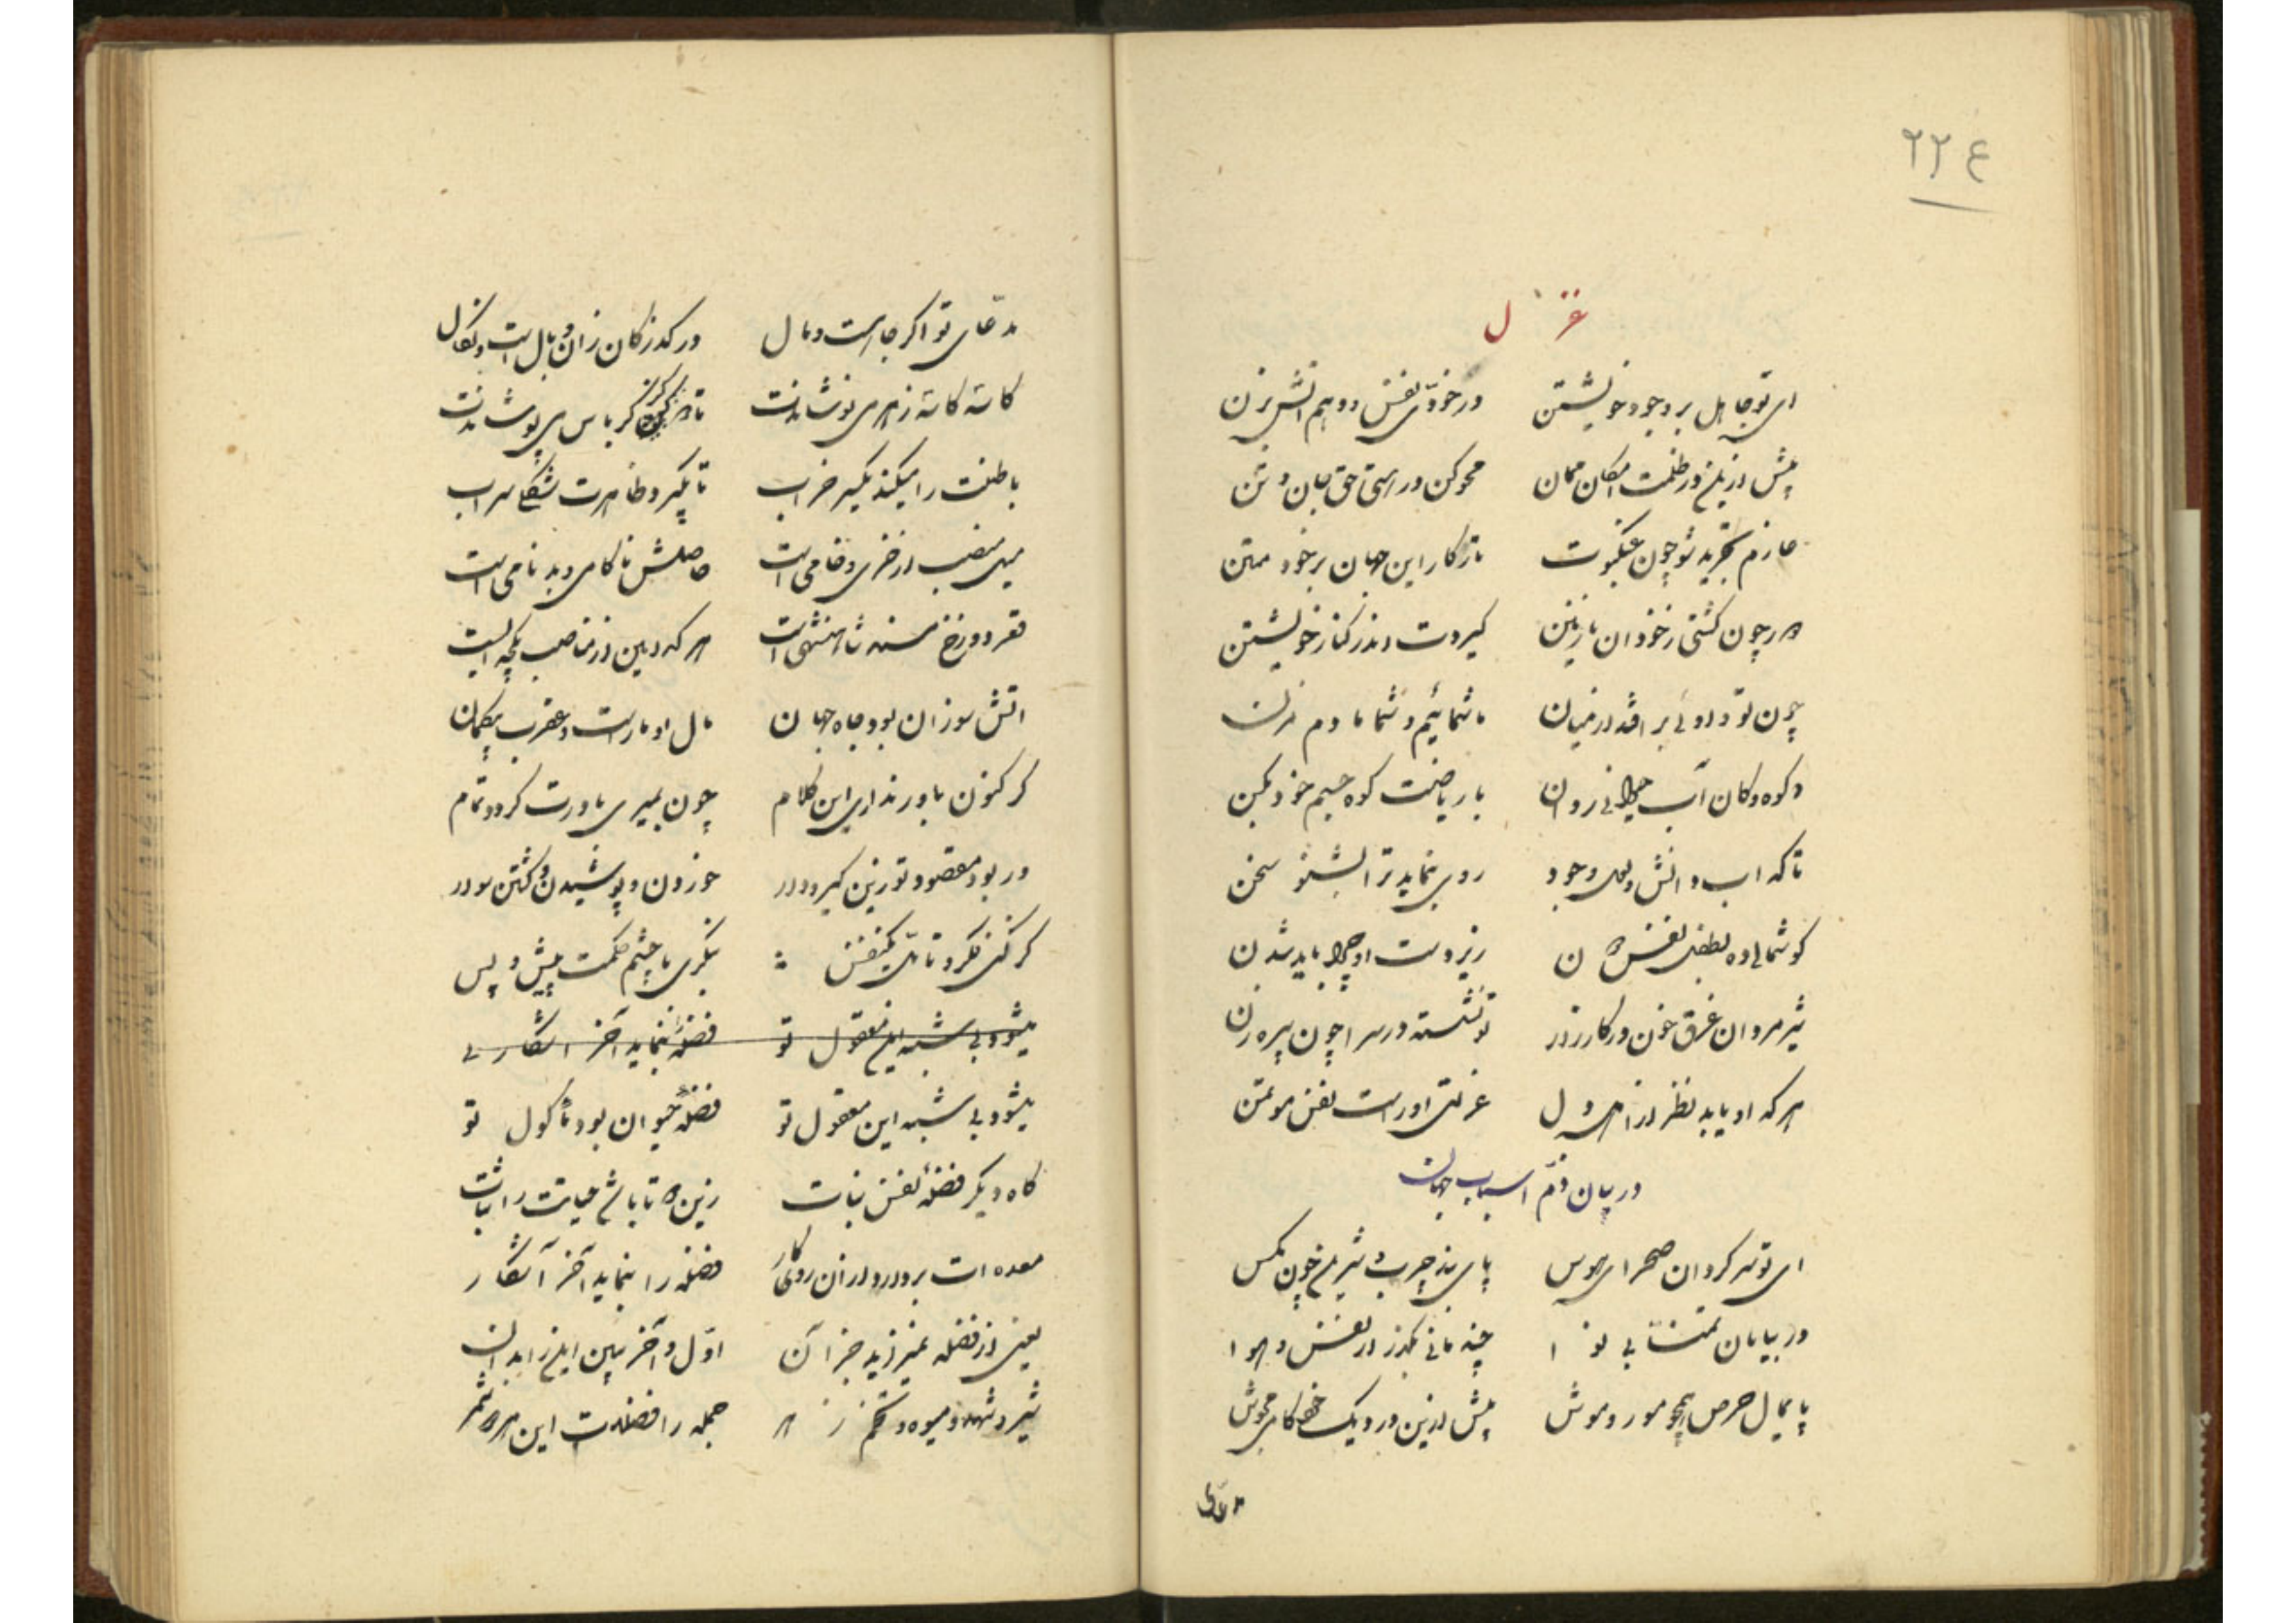 ٢٢٤
غزل
ای تو جاهل بر وجود خویشتن در خودی نفس دو هم آتش بزن
پیش ازین در ظلمت امکان ممان محو کن در هستی حق جان و تن
عازم تجرید شو چون عنکبوت تار کار این جهان بر خود متن
هر چون کشتی ز خود ان نازنین گیردت اندر کنار خویشتن
چون تو و اوئی بر افتد از میان ما شمائیم و شما ما دم مزن
کوه و کان آب حیوانی روان با ریاضت کوه جسم خود بکن
تا که اب و اتش وجود روی بنماید ترا بشنو سخن
گوشمالی ده نفس زیر دست او چرا باید شدن
شیر مردان غرق خون در کارزار تو نشسته در سرا چون پیره زن
هر که او یابد نظر از اهل دل عزلتی اوراست نفس موتمن
در بیان ذم اسباب جهان
ای تو سر گردان صحرای هوس پای بند چرب و شیرین چون مگس
در بیابان تمنا بی نوا چند مانی بگذر از نفس و هوا
پایمال حرص همچو مور و موش پیش ازین در دیک کامی مجوش
مدعای
مدعای تو اگر جاهست و مال در گذر کان زان وبال است و نکال
کاسه کاسه زهر می نوشاندت تا کرباس می پوشاندت
باطنت را میکند یکسر خراب تا بگیرد ظاهرت سراب
میل منصب از خری و خامی است حاصلش ناکامی و بدنامی است
قعر دوزخ است هر که این از مناصب
اتش سوزان بود جاه جهان مال او مارست و عقرب بیگمان
گر کنون باور نداری این کلام چون بمیری باورت گردد تمام
ور بود مقصود تو زین گیر و دار خوردن و پوشیدن و گشتن سوار
گر کنی فکر و تامل یکنفس بنگری با چشم حکمت پیش و پس
میشود بی شبه این معقول تو فضله بنماید آخر اشکار
میشود بی شبه این معقول تو فضله حیوان بود مأکول تو
کاه دیگر فضله نفس نبات زین تا باشی حیاتت را ثبات
معده ات بر دارد از ان روی کار فضله را بنماید آخر آشکار
یعنی از فضله نمیزاید جز آن اول و آخر ببین این را بدان
شیر و شهد و میوه و تخم جمله را فضلست این ثمر